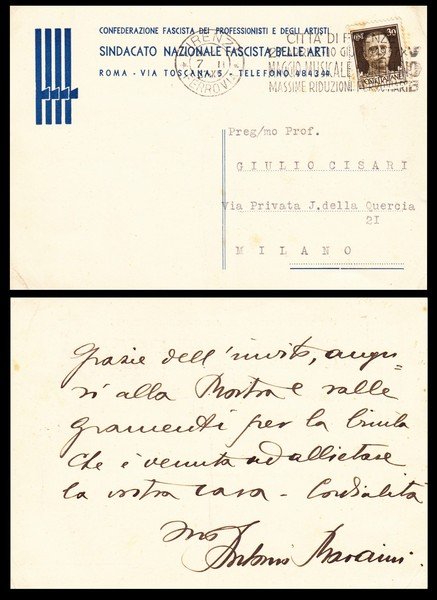 CONFEDERAZIONE FASCISTA DEI PROFESSIONISTI E DEGLI ARTISTI
SINDACATO NAZIONALE FASCISTA BELLE ARTI
ROMA - VIA TOSCANA, 5 - TELEFONO 484340
FERROVIA
CITTÀ DI
MAGGIO MUSICALE
MASSIME RIDUZIONI
30
Preg/mo Prof.
GIULIO CISARI
Via Privata J.della Quercia
21
MILANO
Grazie dell'invito, augu=
ri alla Mostra e ralle
gramenti per la bimba
che è venuta ad allietare
la vostra casa - Cordialità
Antonio Maraini